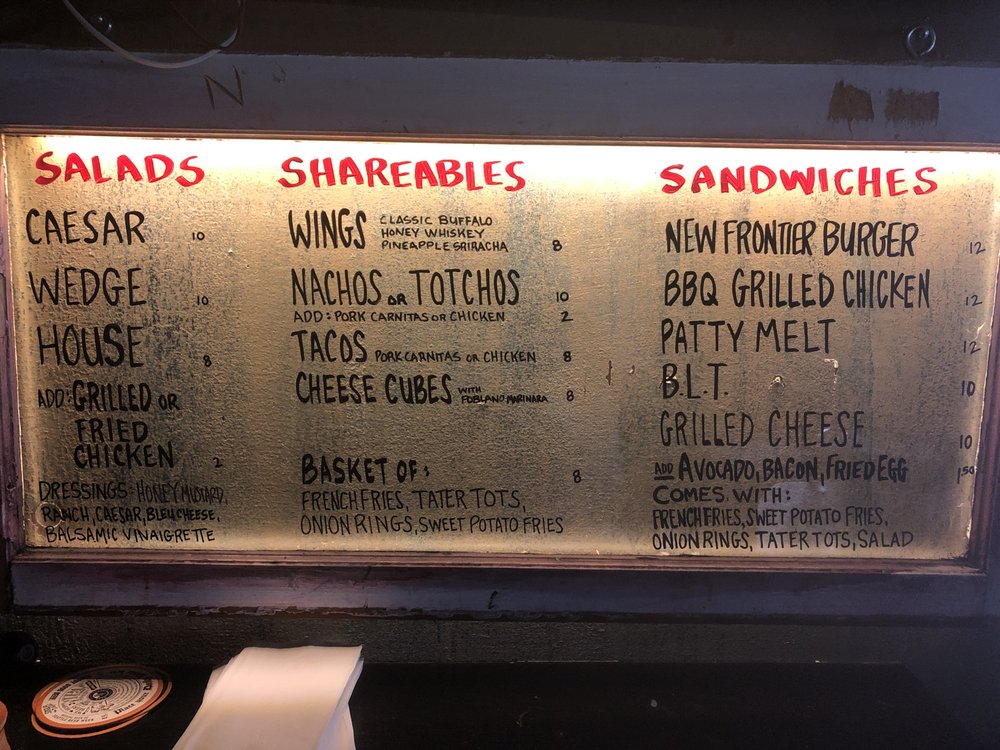 N
SALADS
CAESAR 10
WEDGE 10
HOUSE 8
ADD: GRILLED OR
FRIED
CHICKEN 2
DRESSINGS - HONEY MUSTARD,
RANCH, CAESAR, BLEU CHEESE,
BALSAMIC VINAIGRETTE
SHAREABLES
WINGS CLASSIC BUFFALO
HONEY WHISKEY
PINEAPPLE SRIRACHA 8
NACHOS OR TOTCHOS 10
ADD: PORK CARNITAS OR CHICKEN 2
TACOS PORK CARNITAS OR CHICKEN 8
CHEESE CUBES WITH
POBLANO MARINARA 8
BASKET OF: 8
FRENCH FRIES, TATER TOTS,
ONION RINGS, SWEET POTATO FRIES
SANDWICHES
NEW FRONTIER BURGER 12
BBQ GRILLED CHICKEN 12
PATTY MELT 12
B.L.T. 10
GRILLED CHEESE 10
ADD AVOCADO, BACON, FRIED EGG 1.50
COMES WITH:
FRENCH FRIES, SWEET POTATO FRIES,
ONION RINGS, TATER TOTS, SALAD